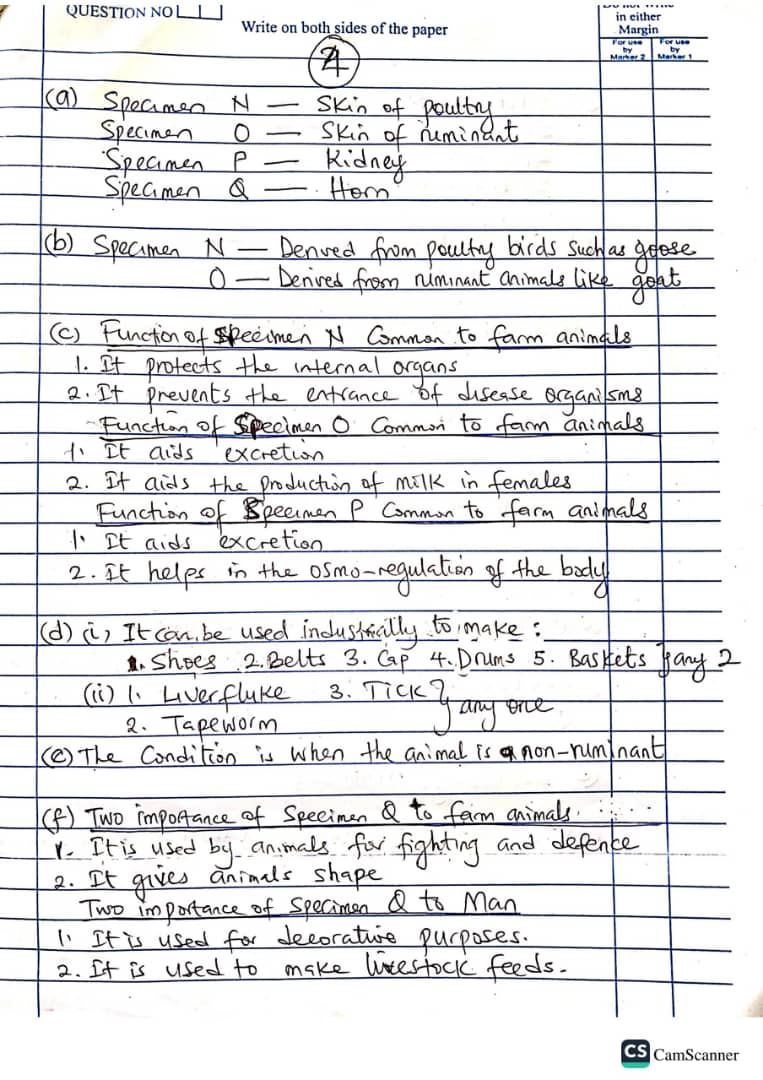 QUESTION NO
Write on both sides of the paper
in either
Margin
For use by Marker 2
For use by Marker 1
4
(a) Specimen N — Skin of poultry
Specimen O — Skin of ruminant
Specimen P — Kidney
Specimen Q — Horn
(b) Specimen N — Derived from poultry birds such as goose
O — Derived from ruminant animals like goat
(c) Function of Specimen N Common to farm animals
1. It protects the internal organs
2. It prevents the entrance of disease organisms
Function of Specimen O Common to farm animals
1. It aids excretion
2. It aids the production of milk in females
Function of Specimen P Common to farm animals
1. It aids excretion
2. It helps in the osmo-regulation of the body
(d) (i) It can be used industrially to make :
1. Shoes 2. Belts 3. Cap 4. Drums 5. Baskets } any 2
(ii) 1. Liverfluke 3. Tick } any one
2. Tapeworm
(e) The Condition is when the animal is a non-ruminant
(f) Two importance of Specimen Q to farm animals.
1. It is used by animals for fighting and defence
2. It gives animals shape
Two importance of Specimen Q to Man
1. It is used for decorative purposes.
2. It is used to make livestock feeds.
CS CamScanner